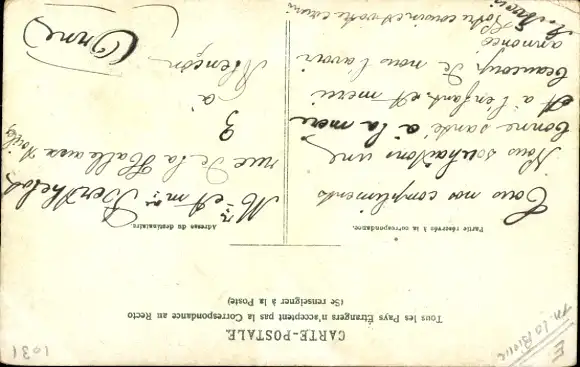 CARTE-POSTALE
Tous les Pays Étrangers n'acceptent pas la Correspondance au Recto
(Se renseigner à la Poste)
Partie réservée à la correspondance.
Adresse du destinataire.
Tous nos compliments
Nous souhaitons une
bonne santé à la mère
et à l'enfant et merci
beaucoup de nous l'avoir
annoncé
Votre cousin et votre cousine
Mr et Mme Berthelot
rue de la Halle aux toiles
3
à
Alençon
(Orne)
1031
E